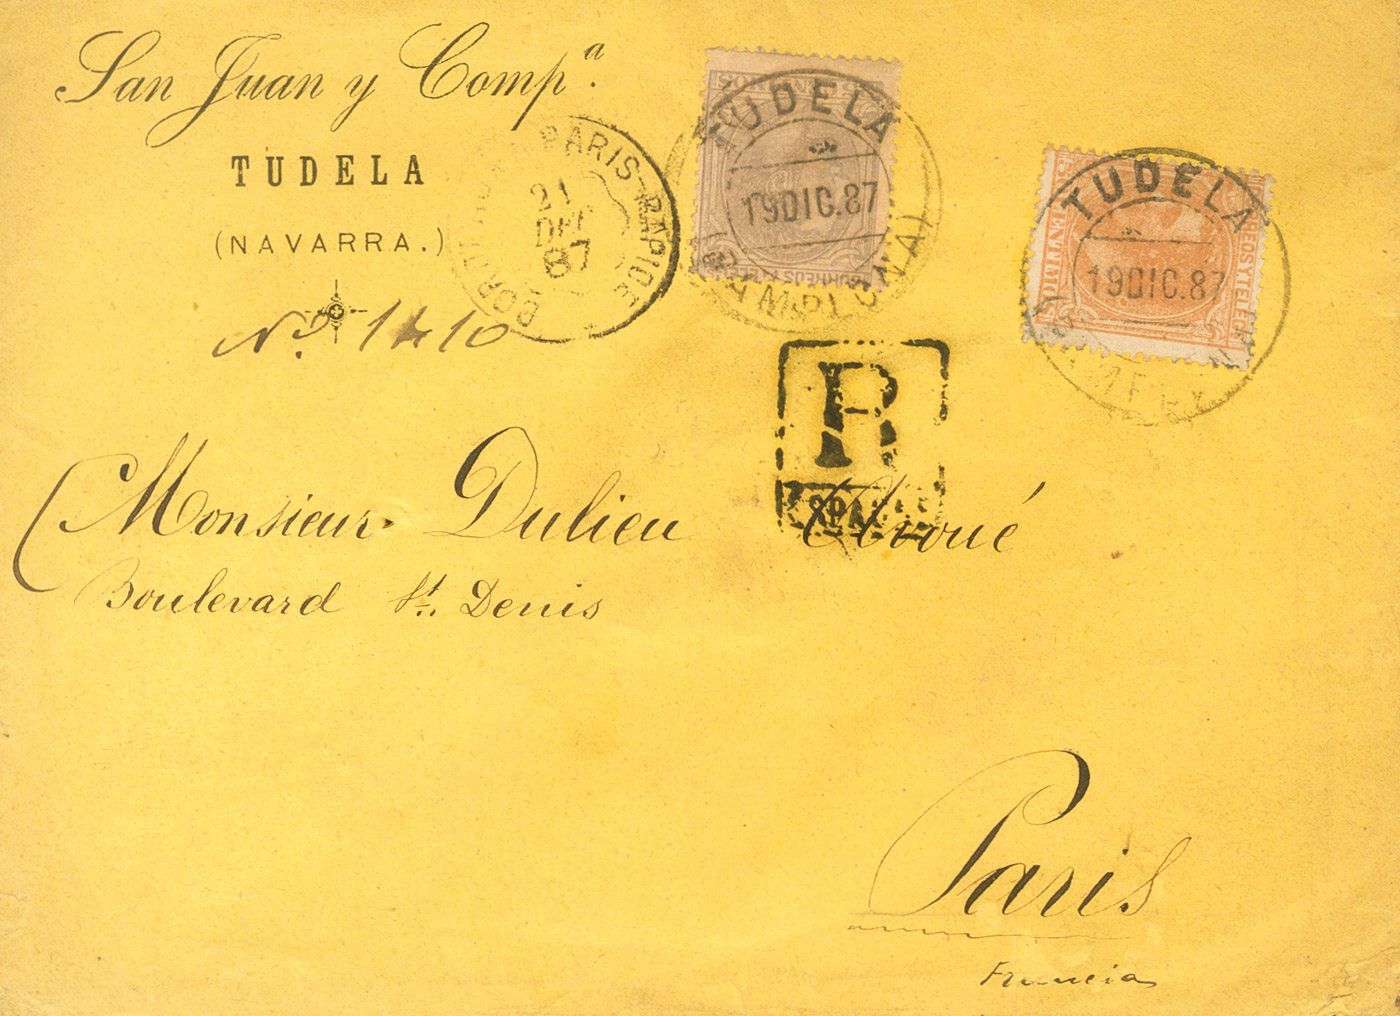 San Juan y Compª.
TUDELA
(NAVARRA.)
Nº. 1410
PARIS RAPIDE
21
DEC
87
CORREOS Y
TUDELA
19 DIC. 87
(PAMPLONA)
CORREOS Y TELEG
CENTIMOS
TUDELA
19 DIC. 87
R
Monsieur Dulieu Avoué
Boulevard St. Denis
Paris
Francia